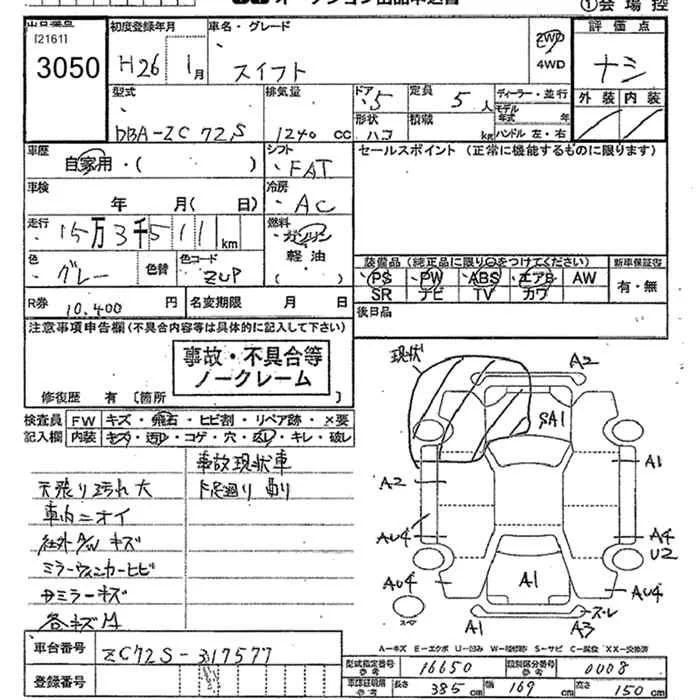 オークション出品申込書
①会場控
[2161]
3050
初度登録年月
H26 1月
車名・グレード
スイフト
2WD
4WD
評価点
ナシ
外装 内装
型式
DBA-ZC72S
排気量
1240 cc
ドア 5
形状 ハコ
定員 5人
積載 kg
ディーラー・並行
モデル年式 年
ハンドル 左・右
車歴
自家用・( )
シフト
FAT
セールスポイント (正常に機能するものに限ります)
車検
年 月( 日)
冷房
AC
走行
15万3千511km
燃料
ガソリン
軽油
( )
色
グレー
色替
色コード
ZUP
装備品 (純正品に限り○をつけてください)
PS PW ABS エアB AW
SR ナビ TV カワ
新車保証書
有・無
R券 10,400 円
名変期限 月 日
後日品
注意事項申告欄(不具合内容等は具体的に記入して下さい)
事故・不具合等
ノークレーム
修復歴 有 〔箇所
検査員記入欄
FW キズ・飛石・ヒビ割・リペア跡・×要
内装 キズ・汚れ・コゲ・穴・・キレ・破レ
事故現状車
天張り汚れ大
下廻り
車内ニオイ
社外AW キズ
ミラーウィンカーヒビ
サミラーキズ
各キズ
現状
A2
SA1
A1
A2
AU4
A4
U2
AU4
A1
AU4
ズレ
A1
A3
A-キズ E-エクボ U-凹み W-補修跡 S-サビ C-腐食 XX-交換済
車台番号
ZC72S-317577
登録番号
型式指定番号 参考
16650
類別区分番号 参考
0008
車検証明用 参考
長さ 385 cm 幅 169 cm 高さ 150 cm